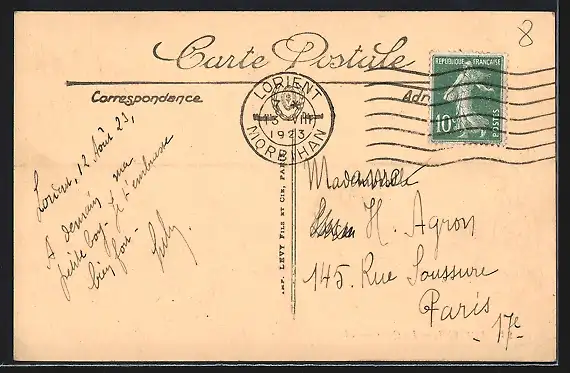 8
Carte Postale
Correspondance
Adr
RÉPUBLIQUE FRANÇAISE
10c
POSTES
LORIENT
13 VIII
1923
MORBIHAN
Lorient, 12 Août 23,
A demain, ma
petite
Je t'embrasse
bien fort.
IMP. LEVY FILS ET CIE, PARIS
H. Agron
145. Rue Saussure
Paris
- 17e